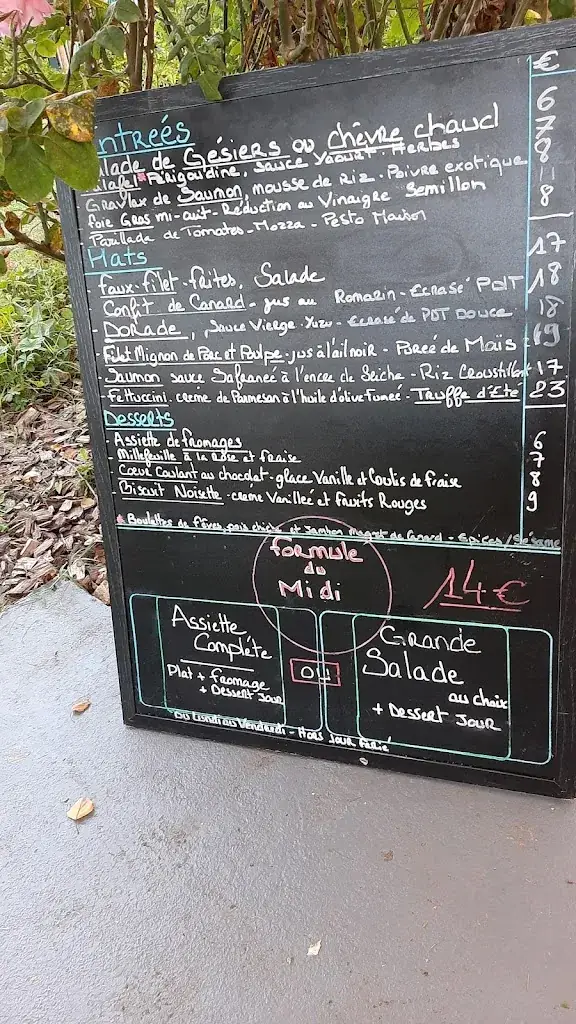 €
ntreés
alade de Gésiers ou chêvre chaud 6
alafel * Périgourdine, sauce Yaourt - Herbes 7
Gravlax de Saumon, mousse de Riz - Poivre exotique 8
foie Gras mi-cuit - Réduction au Vinaigre Semillon 11
Parillade de Tomates - Mozza - Pesto Maison 8
Plats
- Faux-filet - frites, Salade 17
- Confit de Canard - jus au Romarin - Ecrasé PDT 18
- Dorade, Sauce Vierge - Yuzu - Ecrasé de PDT Douce 18
- Filet Mignon de Porc et Poulpe - jus à l'ail noir - Pureé de Maïs 19
- Saumon sauce Safraneé à l'encre de Seiche - Riz Croustillant 17
- Fettuccini - creme de Parmesan à l'huile d'olive fumeé - Truffe d'Ete 23
Desserts
- Assiette de fromages 6
- Millefeuille à la Rose et fraise 7
- Coeur Coulant au chocolat - glace Vanille et Coulis de fraise 8
- Biscuit Noisette - creme Vanilleé et fruits Rouges 9
* Boulettes de fêves, pois chiche et Jambon magret de Canard - Epices / Sésame
formule
du
Midi
14€
Assiette
Complète
Plat + fromage
+ Dessert Jour
OU
Grande
Salade
au choix
+ Dessert Jour
Du Lundi au Vendredi - Hors Jour Férié